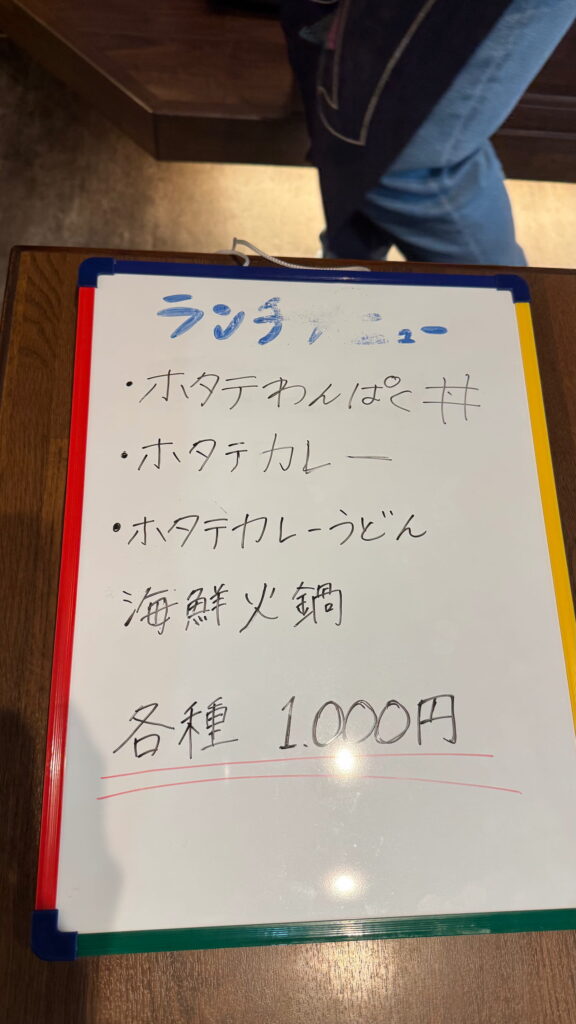 ランチメニュー
・ホタテわんぱく丼
・ホタテカレー
・ホタテカレーうどん
海鮮火鍋
各種 1.000円